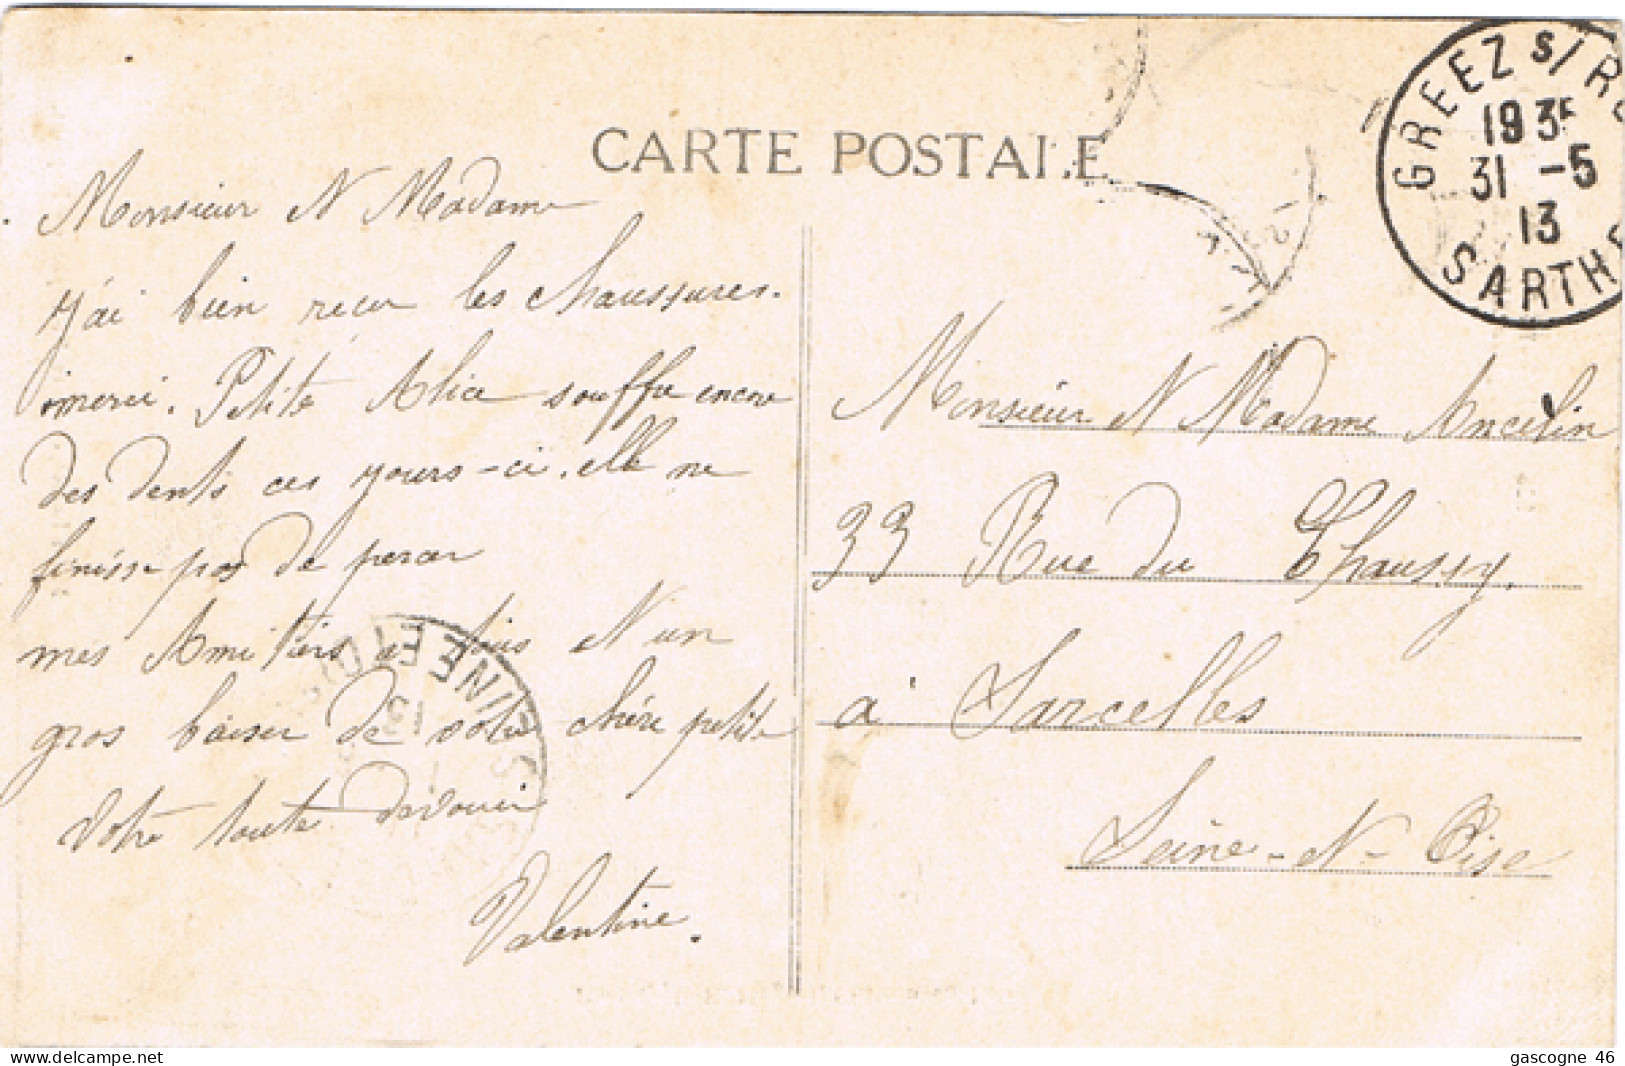 CARTE POSTALE
GREEZ s/ R
1935
31 -5
13
SARTHE
Monsieur N Madame
J'ai bien reçu les chaussures.
merci. Petite Alice souffre encore
des dents ces jours-ci. elle ne
finisse pas de percer
mes Amitiers a tous N un
gros baiser de votre chère petite
Votre toute devouer
Valentine.
Monsieur N Madame Ancelin
33 Rue du Chaussy.
à Sarcelles
Seine-N-Oise
SEINE ET OISE
13
www.delcampe.net
gascogne 46